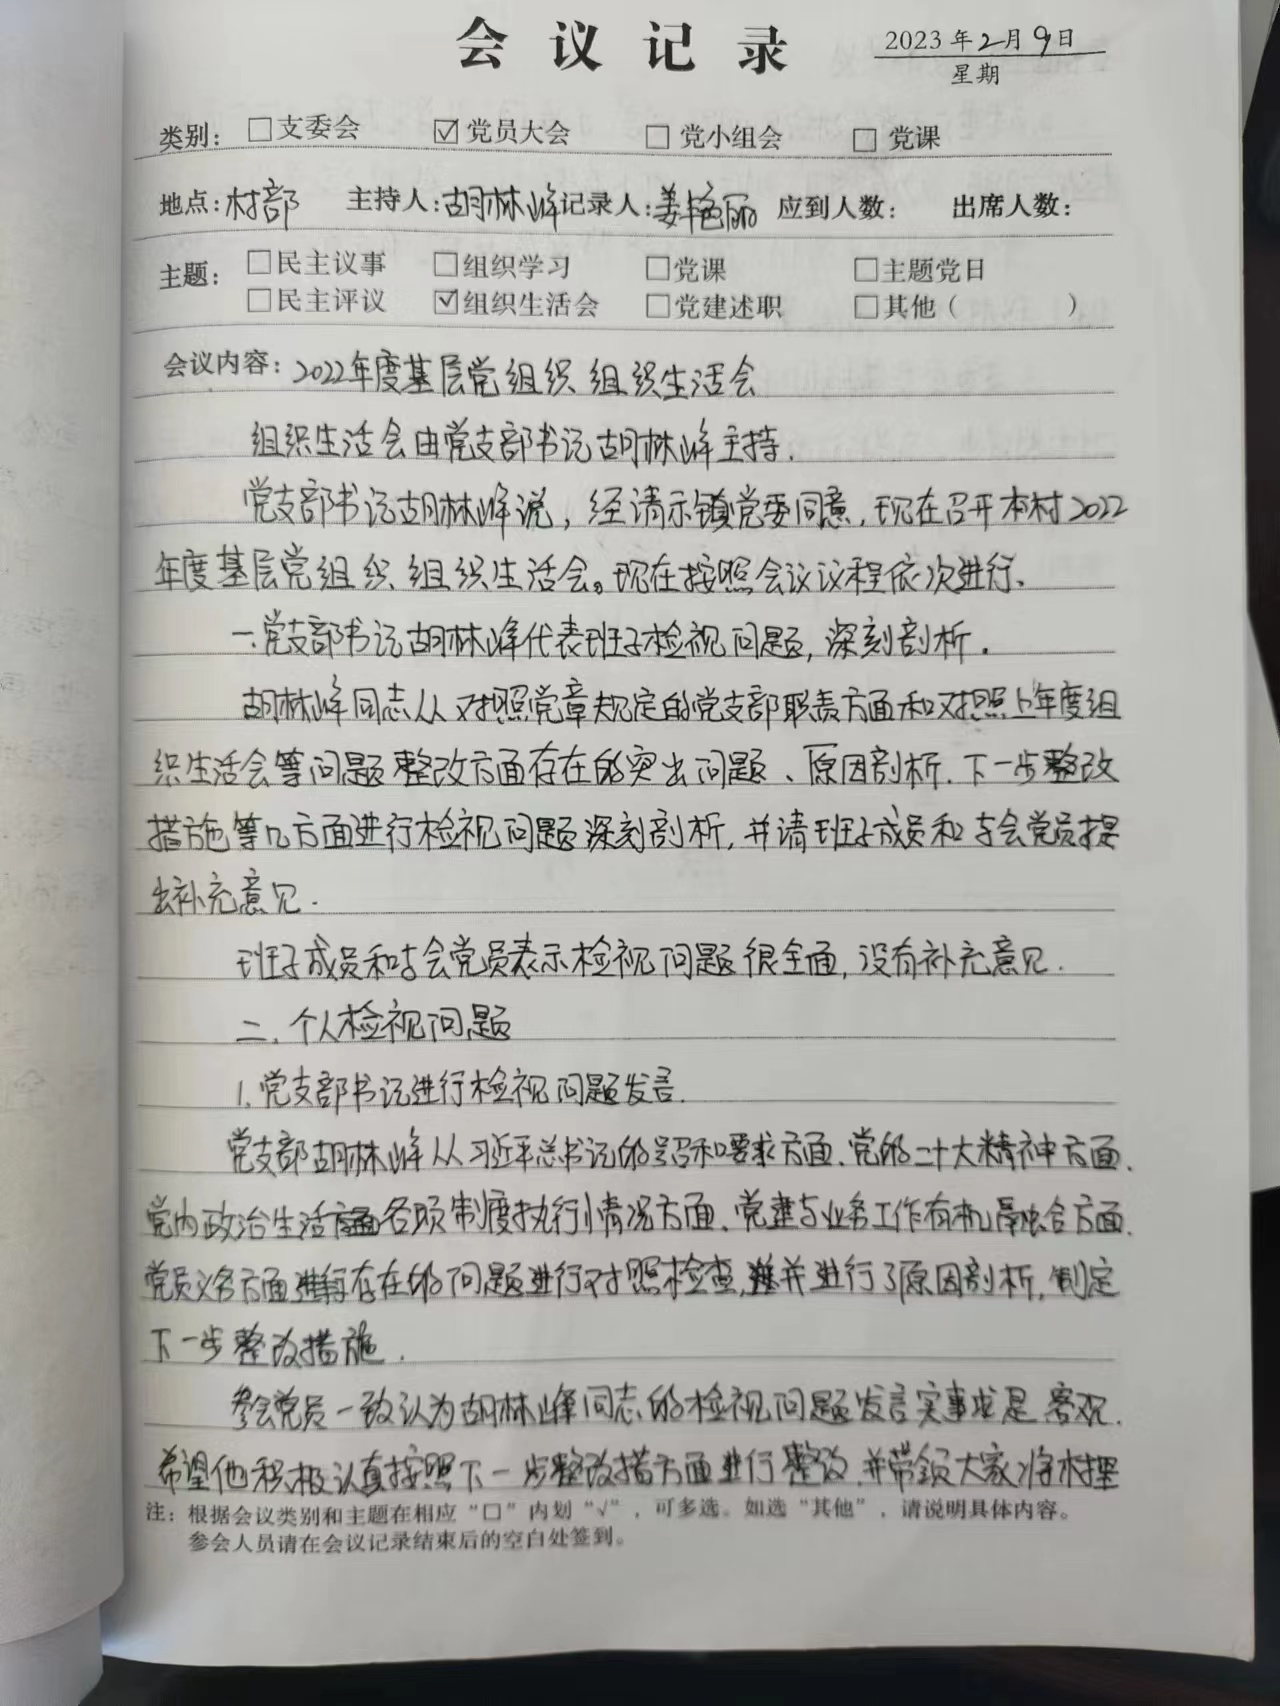 会议记录
2023年2月9日
星期
类别: □支委会 ☑党员大会 □党小组会 □党课
地点:村部 主持人:胡林峰记录人:姜艳丽 应到人数: 出席人数:
主题: □民主议事 □组织学习 □党课 □主题党日
□民主评议 ☑组织生活会 □党建述职 □其他( )
会议内容:2022年度基层党组织组织生活会
组织生活会由党支部书记胡林峰主持.
党支部书记胡林峰说,经请示镇党委同意,现在召开本村2022
年度基层党组织组织生活会。现在按照会议议程依次进行.
一.党支部书记胡林峰代表班子检视问题,深刻剖析.
胡林峰同志从对照党章规定的党支部职责方面和对照上年度组
织生活会等问题整改方面存在的突出问题、原因剖析.下一步整改
措施等几方面进行检视问题深刻剖析,并请班子成员和与会党员提
出补充意见.
班子成员和与会党员表示检视问题很全面,没有补充意见.
二.个人检视问题
1.党支部书记进行检视问题发言.
党支部胡林峰从习近平总书记的号召和要求方面.党的二十大精神方面.
党内政治生活方面各项制度执行情况方面.党建与业务工作有机融合方面.
党员义务方面存在的问题进行对照检查,并进行了原因剖析,制定
下一步整改措施.
参会党员一致认为胡林峰同志的检视问题发言实事求是客观.
希望他积极认真按照下一步整改措方面进行整改.并带领大家将木
注:根据会议类别和主题在相应“□”内划“√”,可多选。如选“其他”,请说明具体内容。
参会人员请在会议记录结束后的空白处签到。